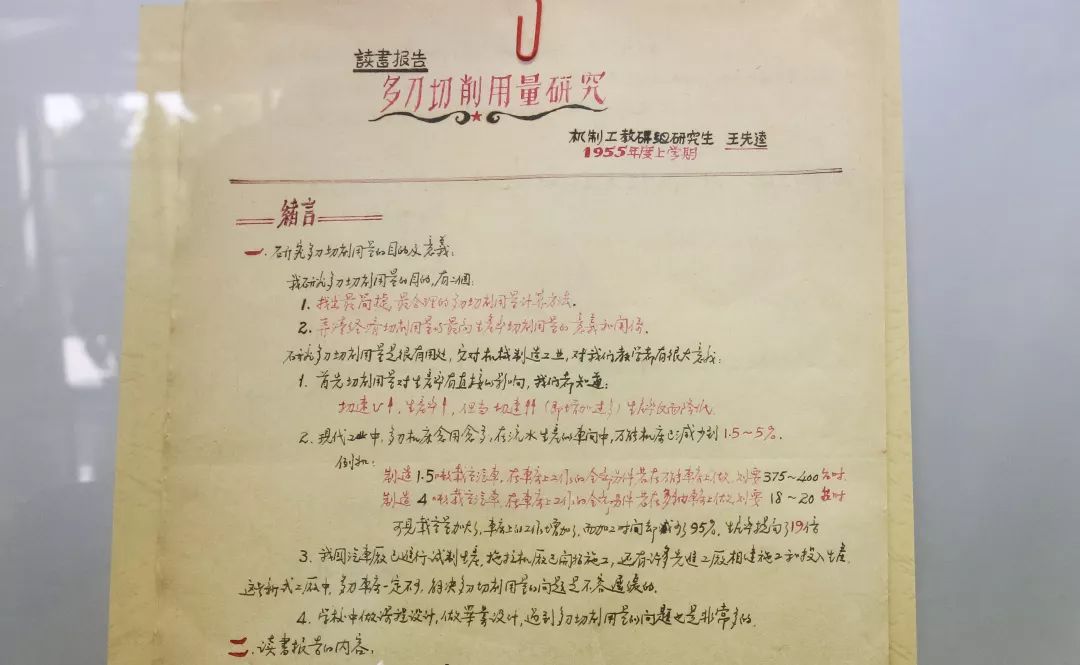 読書报告
多刀切削用量研究
机制工教研组研究生 王先逵
1955年度上学期
緒言
一. 研究多刀切削用量的目的及意義:
我研究多刀切削用量的目的,有二個:
1. 找出最简捷,最合理的多刀切削用量计算方法.
2. 弄清经濟切削用量与最高生產率切削用量的意義和関係.
研究多刀切削用量是很有用处,它对机械制造工业,对我们教学都有很大意義:
1. 首先切削用量对生產率有直接的影响,我们都知道:
切速v↑,生產率↑,但当切速↑↑(即增加过多)生產率反而降低.
2. 现代工业中,多刀机床会用会多,在流水生產的車间中,万能机床已减少到1.5~5%.
例如:
制造1.5吨载重汽車,在車床上工作的全部另件若在万能車床上做,则要375~400台时
制造4吨载重汽車,在車床上工作的全部另件若在多轴車床上做,则要18~20台时
可见载重量加大了,車床上的工作增加了,而加工时间却减少了95%,生產率提高了19倍
3. 我国汽車厰已進行試制生產,拖拉机厰已開始施工,还有许多先進工厰相继施工和投入生產.
这些新式工厰中,多刀車床一定不少,解决多刀切削用量的问题是不容遲缓的.
4. 学校中做课程设计,做畢業设计,遇到多刀切削用量的问题也是非常多的.
二. 读書报告的内容: